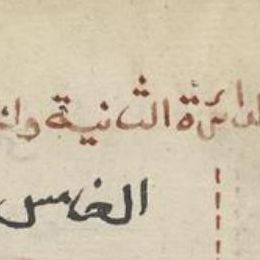 الدائرة الثانية
الخامس